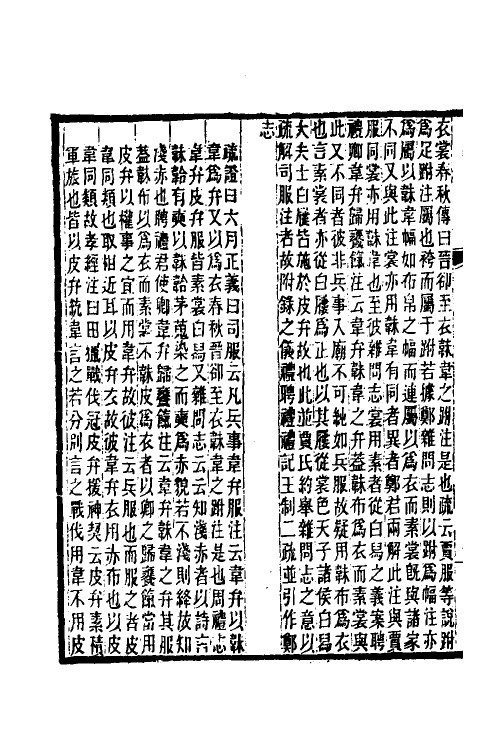 衣裳春秋傳曰晉卻至衣韎韋之跗注是也疏云賈服等說跗
爲足跗注屬也袴而屬于跗若據鄭雜問志則以跗爲幅注亦
爲屬以韎韋幅如布帛之幅而連屬以爲衣而素裳旣與諸家
不同又與此注裳亦用韎韋有同者異者鄭君兩解此注與賈
服同裳亦用韎韋也至彼雜問志裳用素者從白舄之義案聘
禮卿韋弁歸饔餼注云韋弁韎韋之弁葢韎布爲衣而素裳與
此又不同者彼非兵事入廟不可純如兵服故疑用韎布爲衣
也言素裳者亦從白屨爲正也以其屨從裳色天子諸侯白舄
大夫士白屨皆施於皮弁故也此並賈氏約舉雜問志之意以
疏解司服注者故附錄之儀禮聘禮禮記王制二疏並引作鄭
志
疏證曰六月正義曰司服云凡兵事韋弁服注云韋弁以韎
韋爲弁又以爲衣春秋晉卻至衣韎韋之跗注是也周禮志
韋弁皮弁服皆素裳白舄又雜問志云云知淺赤者以詩言
韎韐有奭以韎韐茅蒐染之而奭爲赤貌若不淺則絳故知
淺赤也聘禮君使卿韋弁歸饔餼注云韋弁韎韋之弁其服
葢韎布以爲衣而素裳不韎皮爲衣者以卿之歸饔餼當用
皮弁以權事之宜而用韋弁故彼注云兵服也而服之者皮
韋同類也取相近耳以皮弁衣故彼韋弁衣用赤布也以皮
韋同類故孝經注曰田獵戰伐冠皮弁援神契云皮弁素積
軍旅也皆以皮弁統韋言之若分別言之戰伐用韋不用皮